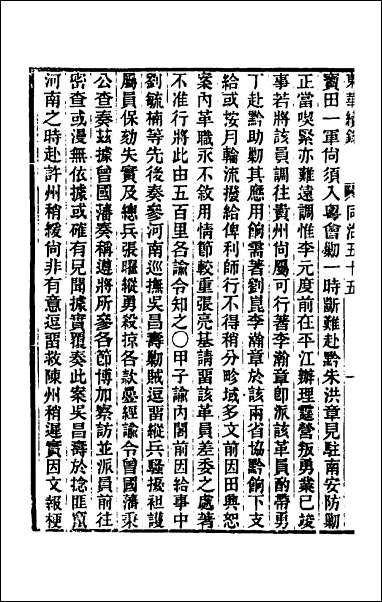 東華續錄 同治五十五
寶田一軍尙須入粵會勦一時斷難赴黔朱洪章見駐南安防勦
正當喫緊亦難遠調惟李元度前在平江辦理霆營叛勇業已竣
事若將該員調往貴州尙屬可行著李瀚章卽派該革員酌帶勇
丁赴黔助勦其應用餉需著劉崑李瀚章於該兩省協黔餉下支
給或按月輪流撥給俾利師行不得稍分畛域多文前因田興恕
案內革職永不敘用情節較重張亮基請畱該革員差委之處著
不准行將此由五百里各諭令知之〇甲子諭內閣前因給事中
劉毓楠等先後奏參河南巡撫吳昌壽勦賊逗畱縱兵騷擾袒護
屬員保劾失實及總兵張曜縱勇殺掠各款疊經諭令曾國藩秉
公查奏茲據曾國藩奏稱遵將所參各節博加察訪並派員前往
密查或漫無依據或確有見聞據實覆奏此案吳昌壽於捻匪竄
河南之時赴許州稍緩尙非有意逗畱救陳州稍遲實因文報梗